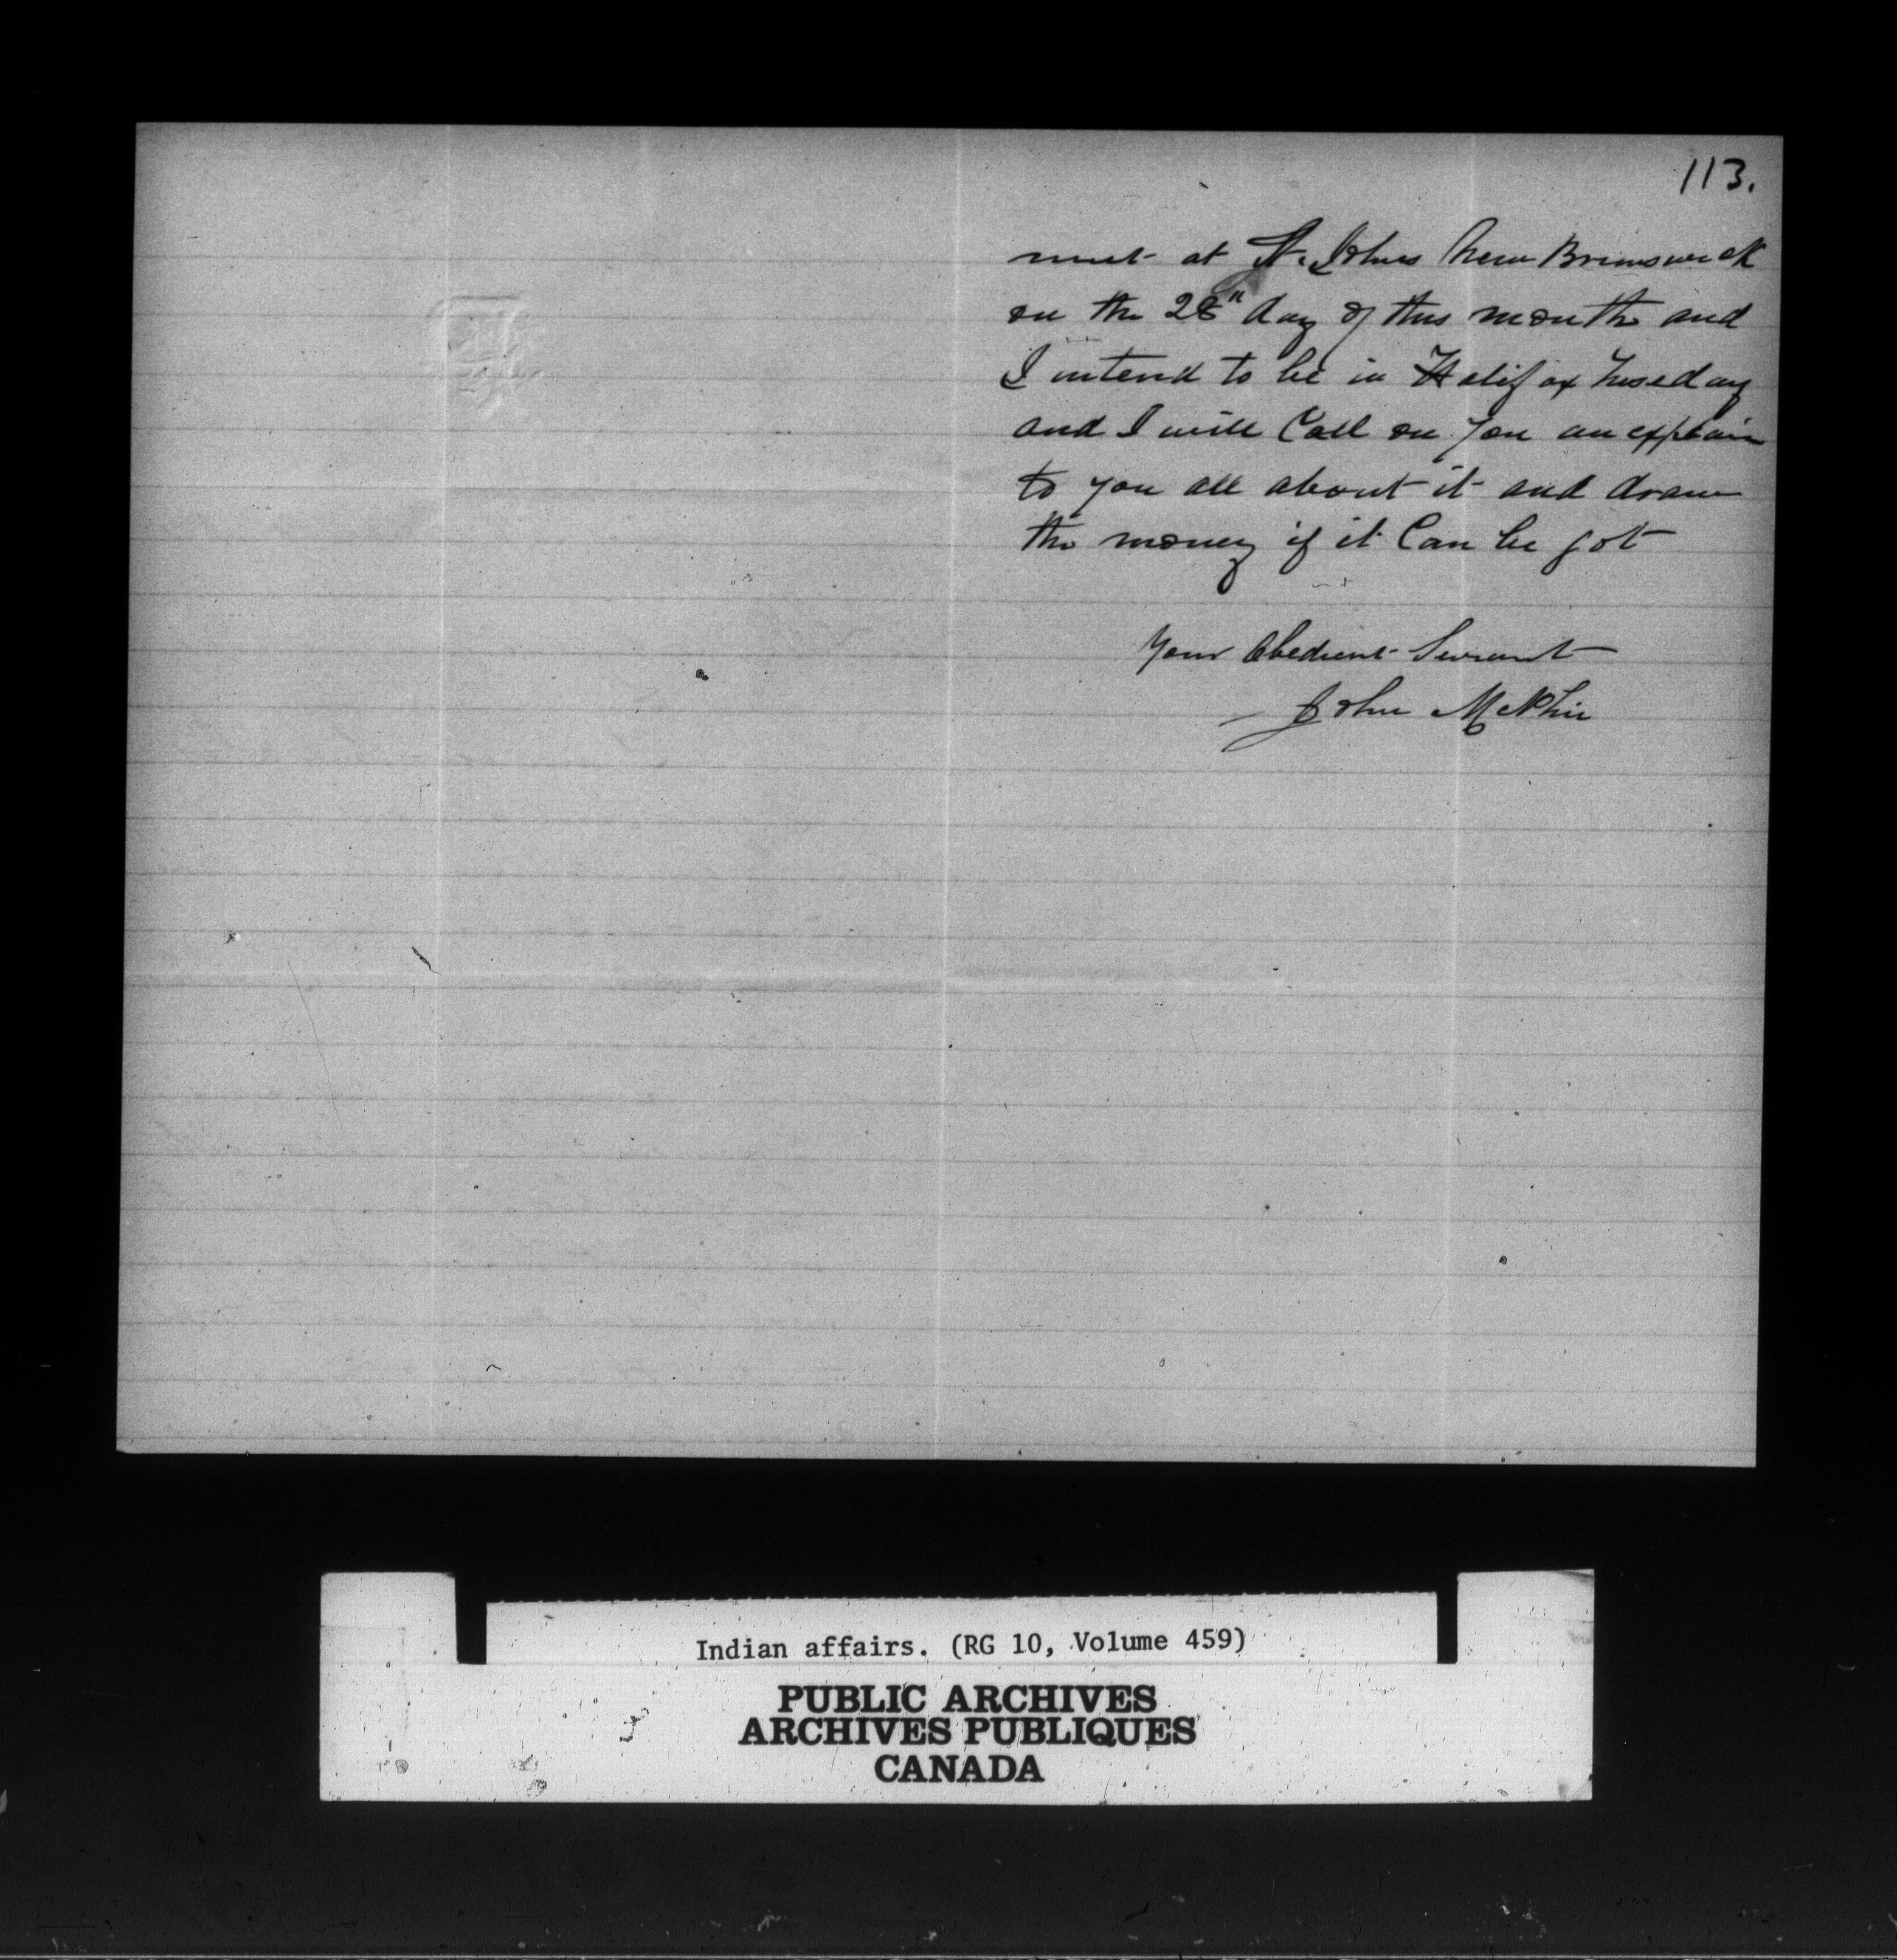 113.
meet at St. Johns New Brunswick
on the 28" day of this month and
I intend to be in Halifax Tuseday
and I will Call on you an explain
to you all about it and draw
the money if it Can be got
Your Obedient Servant
John McPhie
Indian affairs. (RG 10, Volume 459)
PUBLIC ARCHIVES
ARCHIVES PUBLIQUES
CANADA